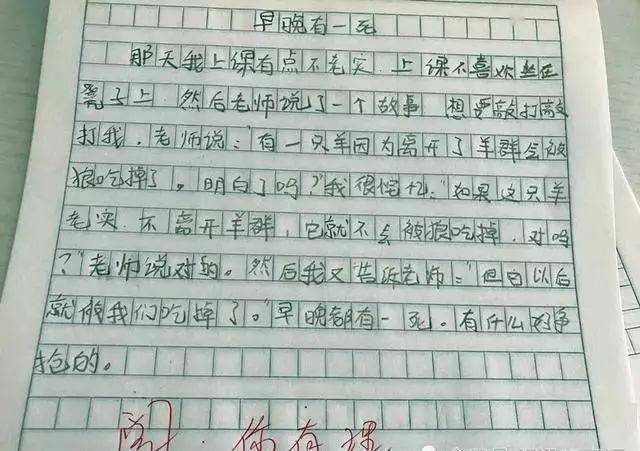 早晚有一死
那天我上课有点不老实.上课不喜欢坐在
凳子上.然后老师说了一个故事 想要敲打敲
打我.老师说:"有一只羊因为离开了羊群会被
狼吃掉了。明白了吗?"我很惶恐:"如果这只羊
老实.不离开羊群.它就不会被狼吃掉.对吗
?"老师说对的。然后我又告诉老师:"但它以后
就被我们吃掉了。"早晚都有一死.有什么好争
抢的。
阅.你有理.